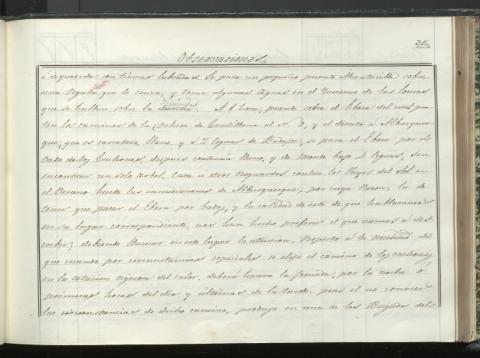 Observaciones.
é izquierda con tierras labradas. Se pasa un pequeño puente Mantovilla sobre
una Regata que lo corta, y toma algunas Aguas en el Invierno de las lomas
que se hallan sobre la derecha. A 1 hora, puente sobre el Ebora del cual par
ten los caminos de la Codosera el N. O, y el directo á Alburquer
que, que es carretera, llano, y á 2 leguas de Badajoz, se pasa el Ebora por do
Vado de los Carbones, despues continúa llano, y de monte bajo 4 leguas, sin
encontrar un solo arbol, casa ú otro resguardo contra los Rayos del Sol en
el Verano hasta las inmediaciones de Alburquerque, por cuya razon, la de
tener que pasar el Ebora por bado, y la cantidad de este de que hablaremos
en su lugar correspondiente, nos han hecho preferir el que vamos á des
cribir; debiendo llamar en este lugar la atencion, respecto á la necesidad de
que cuando por circunstancias especiales se elija el camino de los carbones,
en la estacion rigorosa del calor, deberá hacerse la jornada, por la noche ó
primeras horas del dia y últimas de la tarde, pues el no conocer
las circunstancias de dicho camino, produjo en una de las Brigadas del